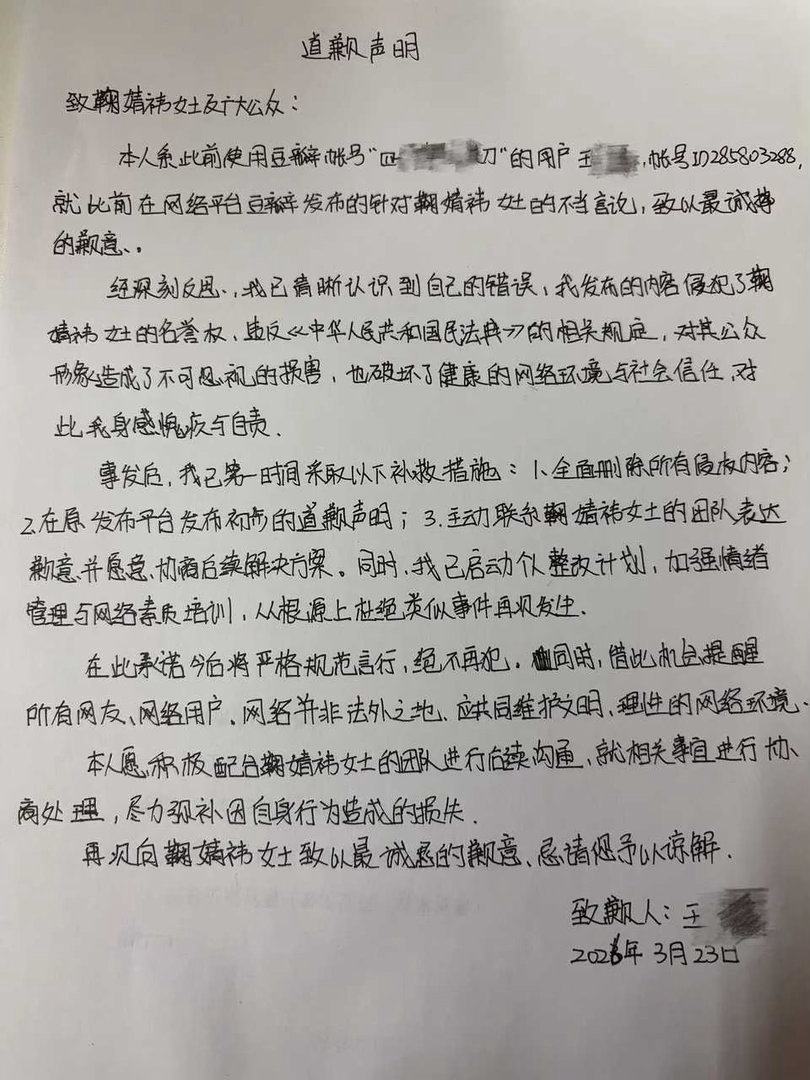 道歉声明
致鞠婧祎女士及广大公众：
本人系此前使用豆瓣帐号“四 刀”的用户王 ，帐号ID285803288，
就此前在网络平台豆瓣发布的针对鞠婧祎女士的不当言论，致以最诚挚
的歉意、。
经深刻反思，我已清晰认识到自己的错误，我发布的内容侵犯了鞠
婧祎女士的名誉权，违反《中华人民共和国民法典》的相关规定，对其公众
形象造成了不可忽视的损害，也破坏了健康的网络环境与社会信任，对
此我身感愧疚与自责.
事发后，我已第一时间采取以下补救措施：1、全面删除所有侵权内容；
2.在原发布平台发布初步的道歉声明；3.主动联系鞠婧祎女士的团队表达
歉意、并愿意协商后续解决方案。同时，我已启动个人整改计划，加强情绪
管理与网络素质培训，从根源上杜绝类似事件再次发生.
在此承诺今后将严格规范言行，绝不再犯。同时，借此机会提醒
所有网友、网络用户、网络并非法外之地、应共同维护文明、理性的网络环境.
本人愿积极配合鞠婧祎女士的团队进行后续沟通、就相关事宜进行协
商处理，尽力弥补因自身行为造成的损失.
再次向鞠婧祎女士致以最诚恳的歉意、恳请您予以谅解.
致歉人：王
2026年3月23日